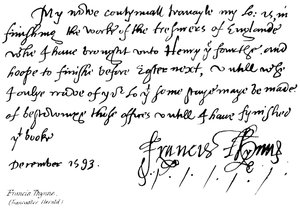 My nowe contynuall travayle my lo: is, in
finishing the worke of the tresurers of Englande
whiche I have brought unto Henry ye fourthe, and
hoope to finishe before Easter next, untill whiche
I onlye move of yor Lo: yt some staye maye be made
of bestowinge those offices untill I have fynished
yt booke
December 1593.
Francis Thynne
Francis Thynne.
(Lancaster Herald)